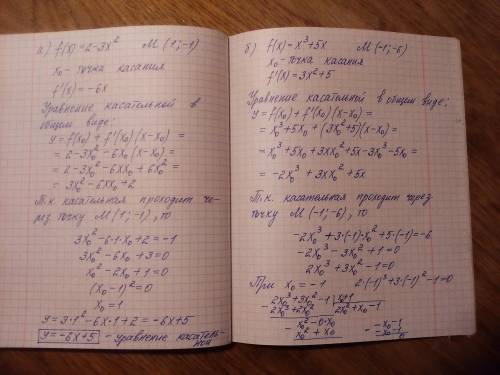 а) f(x)=2-3x² M(1;-1)
x₀ - точка касания
f'(x)=-6x
Уравнение касательной в
общем виде:
y=f(x₀)+f'(x₀)(x-x₀)=
=2-3x₀²-6x₀(x-x₀)=
=2-3x₀²-6xx₀+6x₀²=
=3x₀²-6xx₀+2
Т.к. касательная проходит че-
рез точку M(1;-1), то
3x₀²-6·1·x₀+2=-1
3x₀²-6x₀+3=0
x₀²-2x₀+1=0
(x₀-1)²=0
x₀=1
y=3·1²-6x·1+2=-6x+5
y=-6x+5 - уравнение касатель-
ной
б) f(x)=x³+5x M(-1;-6)
x₀ - точка касания
f'(x)=3x²+5
Уравнение касательной в общем виде:
y=f(x₀)+f'(x₀)(x-x₀)=
=x₀³+5x₀+(3x₀²+5)(x-x₀)=
=x₀³+5x₀+3xx₀²+5x-3x₀³-5x₀=
=-2x₀³+3xx₀²+5x
Т.к. касательная проходит через
точку M(-1;-6), то
-2x₀³+3·(-1)·x₀²+5·(-1)=-6
-2x₀³-3x₀²+1=0
2x₀³+3x₀²-1=0
При x₀=-1 2·(-1)³+3·(-1)²-1=0
- 2x₀³+3x₀²-1 | x₀+1
2x₀³+2x₀² 2x₀²+x₀-1
- x₀²-0·x₀ - -x₀-1
x₀²+x₀ -x₀-1